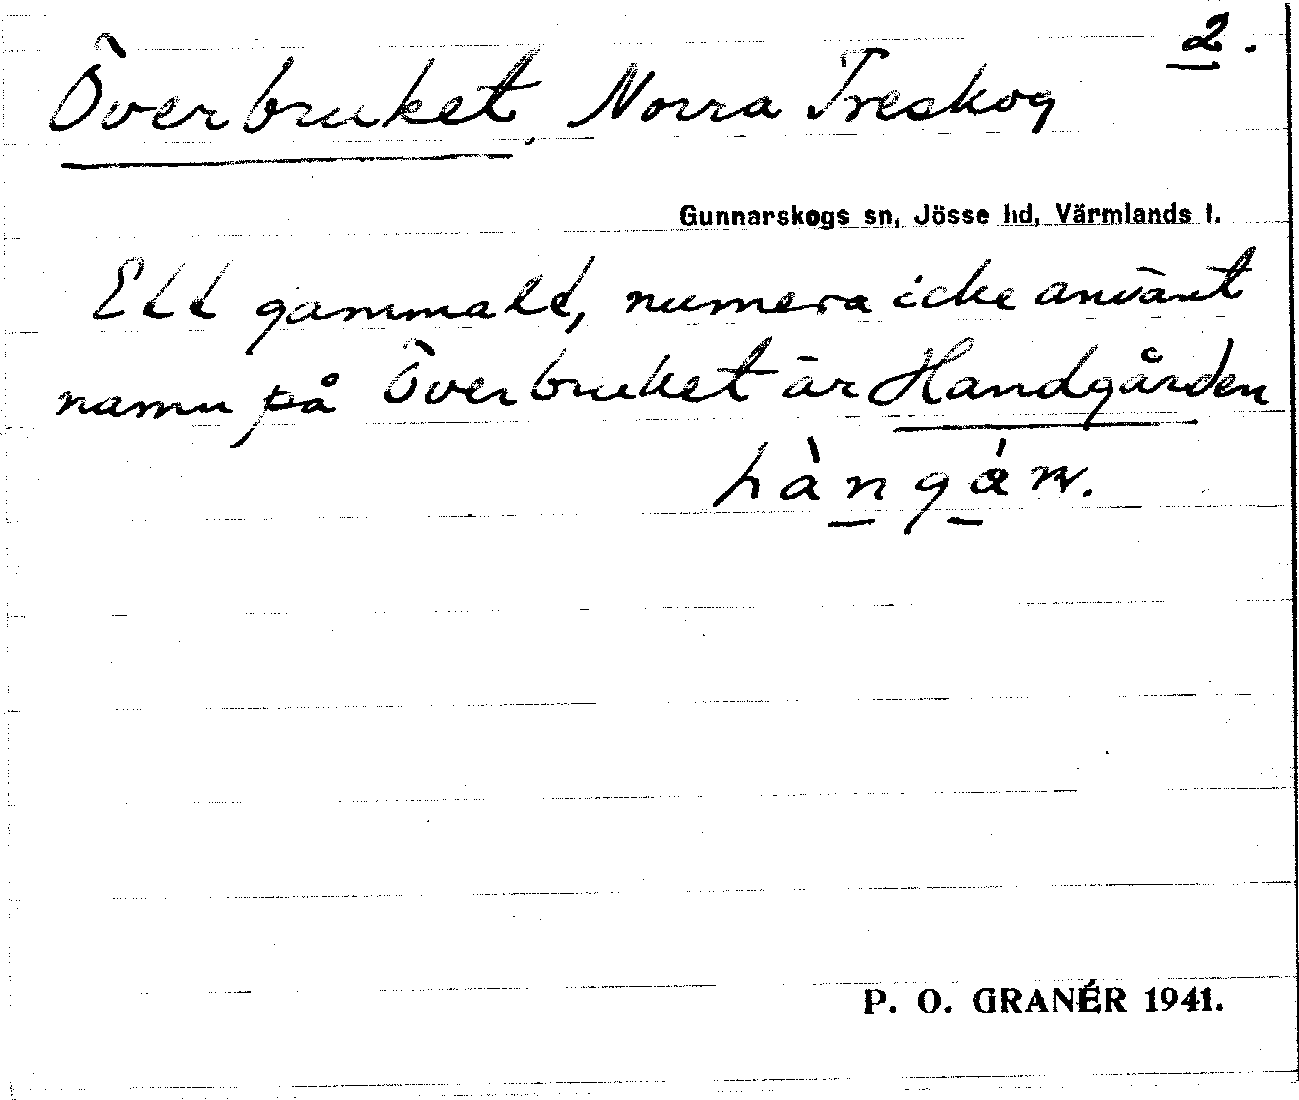 2.
Överbruket, Norra Treskog
Gunnarskogs sn, Jösse hd, Värmlands l.
Ett gammalt, numera icke använt
namn på Överbruket är Handgården
hàngán.
P. O. GRANÉR 1941.